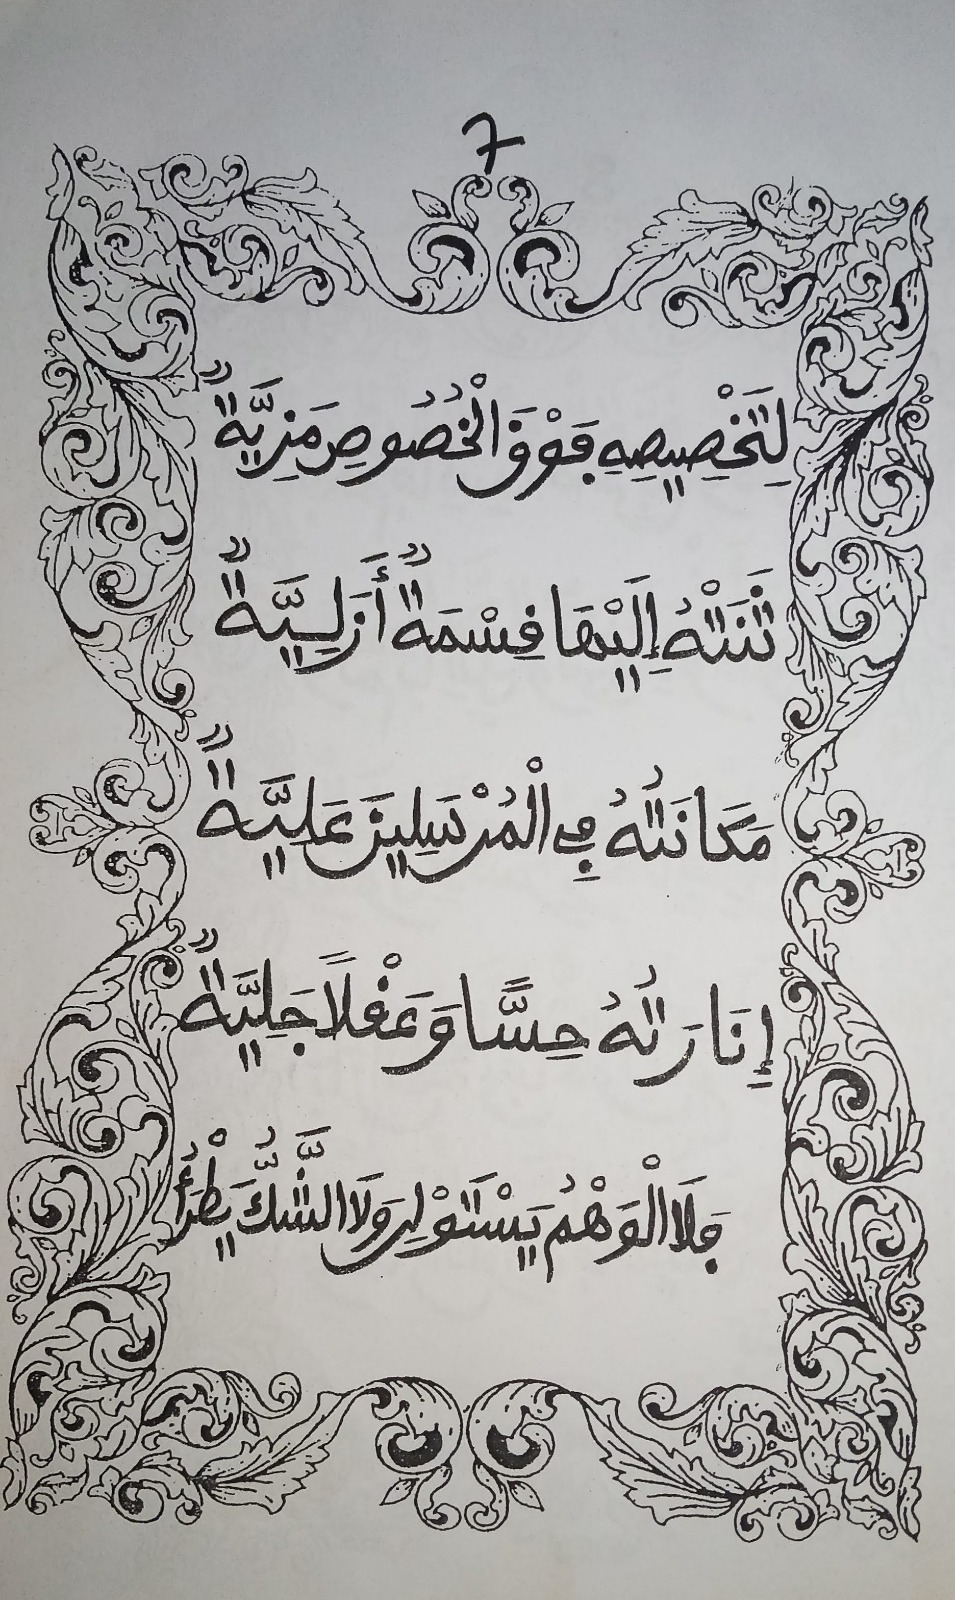 7
لِتَخْصِيصِهِ فَوْقَ الْخُصُوصِ مَزِيَّةٌ
ثَنَتْهُ إِلَيْهَا قِسْمَةٌ أَزَلِيَّةٌ
مَكَانَتُهُ فِي الْمُرْسَلِينَ عَلِيَّةٌ
إِنَارَتُهُ حِسًّا وَعَقْلًا جَلِيَّةٌ
فَلَا الْوَهْمُ يَسْتَوْلِي وَلَا الشَّكُّ يَطْرَأُ